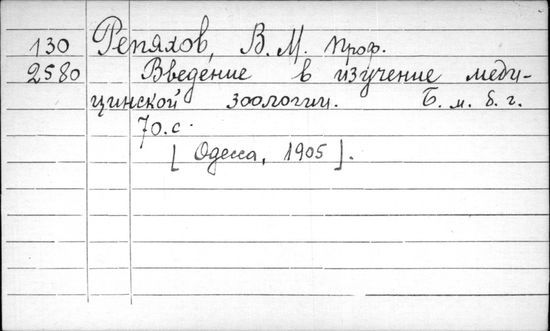 130 Репяхов, В. М. проф.
2580 Введение в изучение меди-
цинской зоологии. Б. м. б. г.
70.с.
[Одесса, 1905].